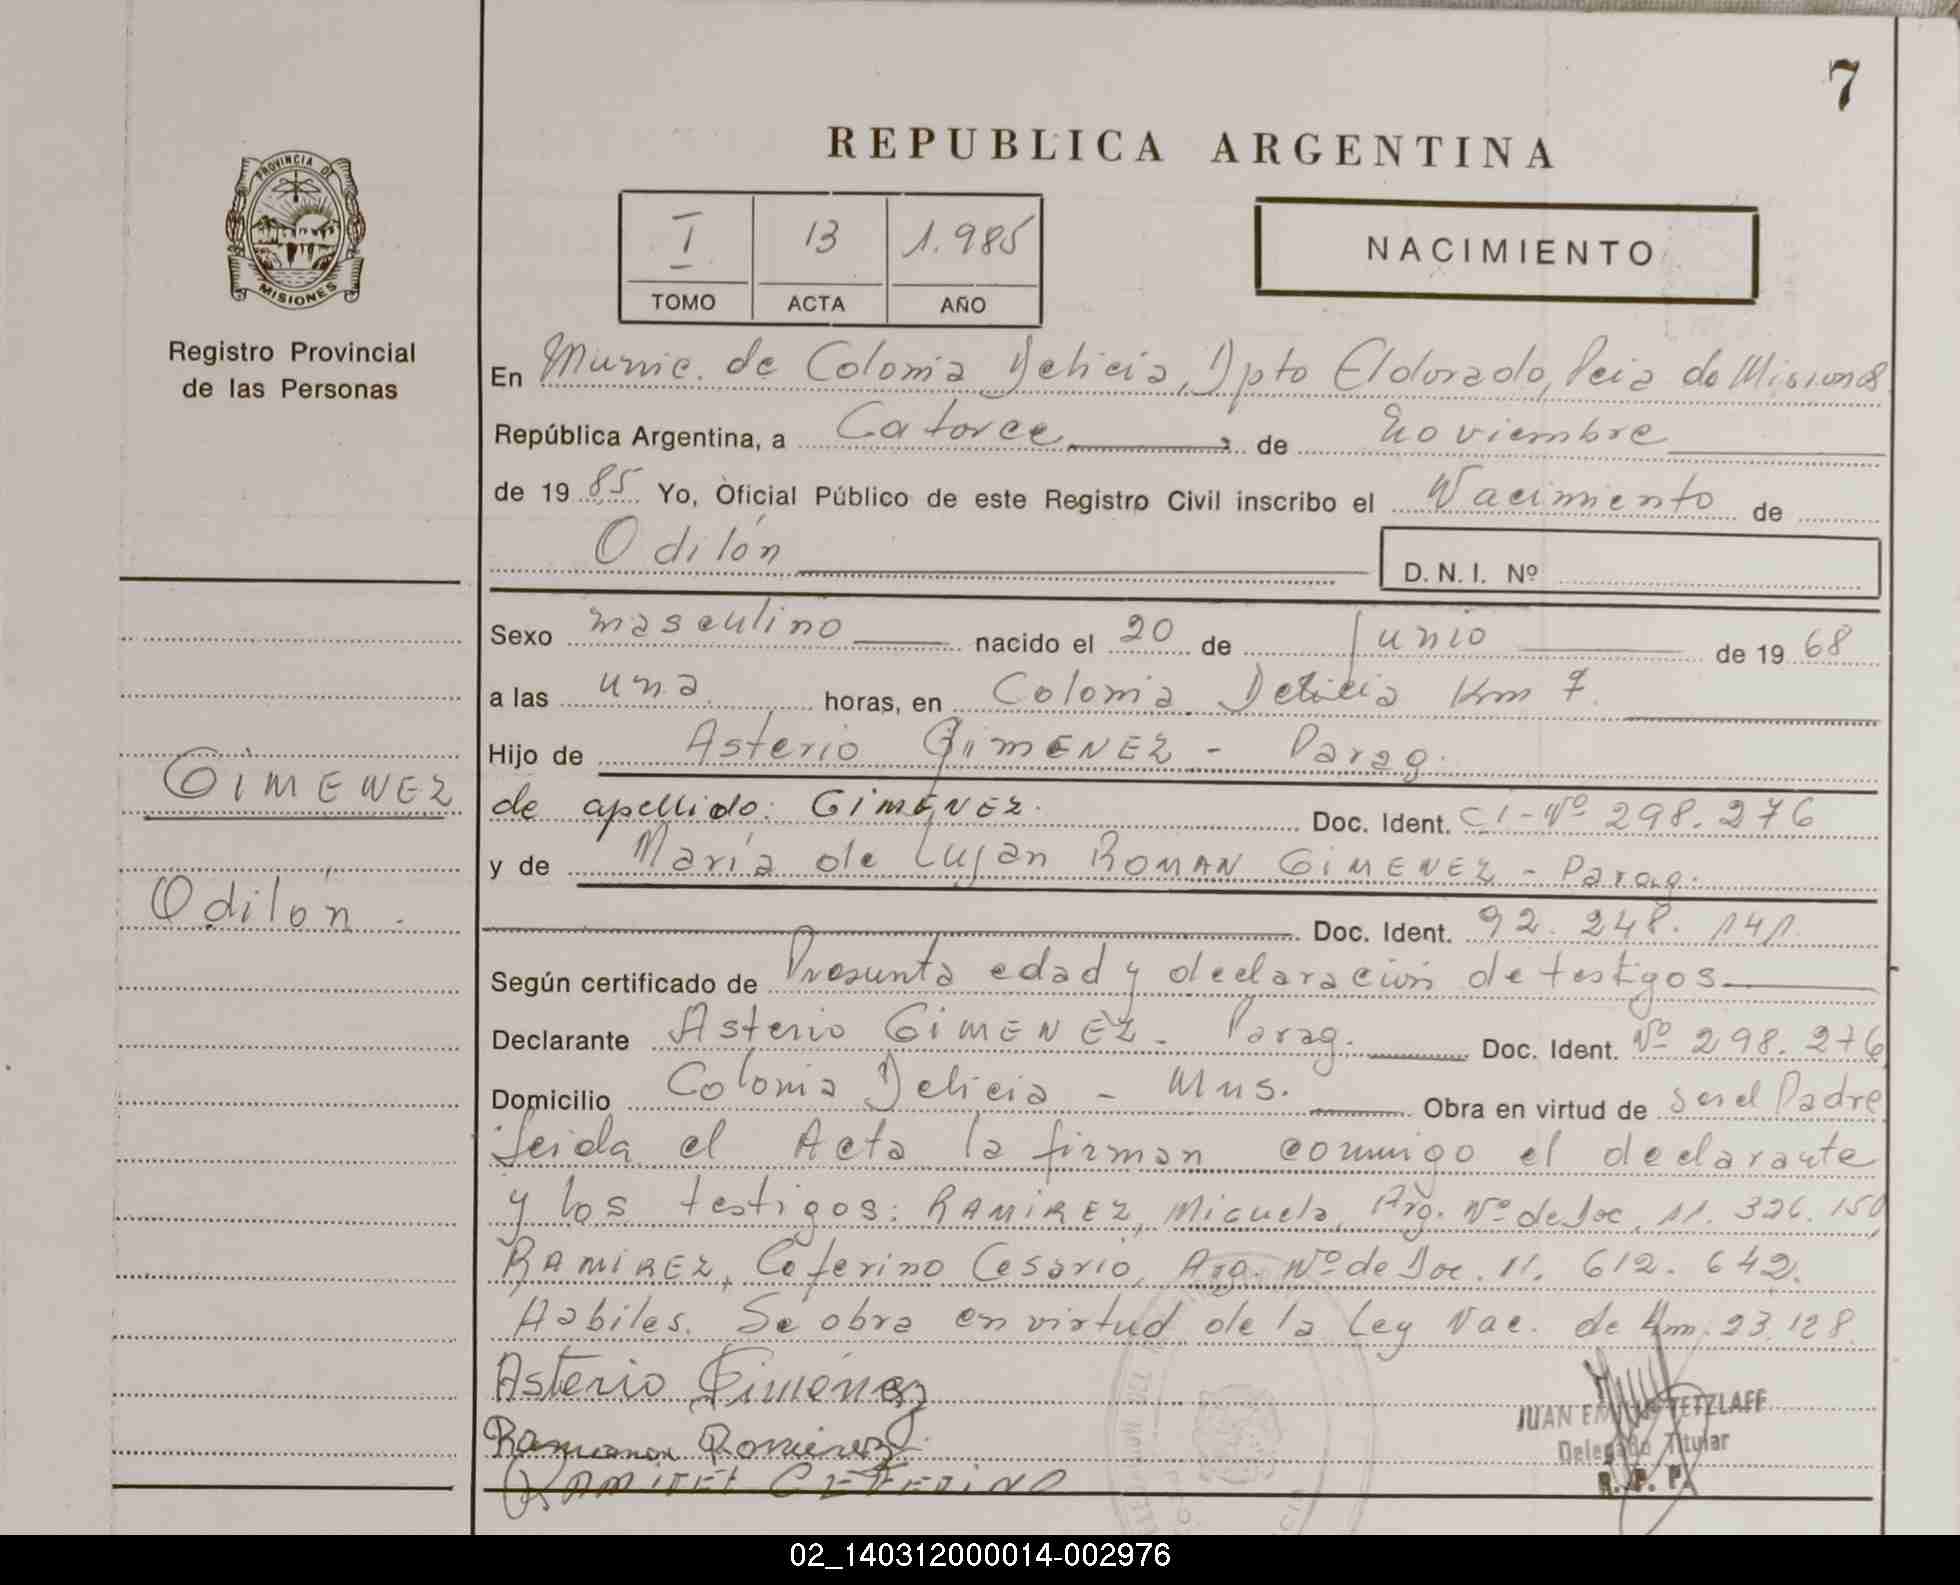 7
REPUBLICA ARGENTINA
PROVINCIA DE
MISIONES
Registro Provincial
de las Personas
I 13 1.985
TOMO ACTA AÑO
NACIMIENTO
En Munic. de Colonia Delicia, Dpto Eldorado, Pcia de Misiones
República Argentina, a Catorce de Noviembre
de 19 85 Yo, Oficial Público de este Registro Civil inscribo el Nacimiento de
Odilón
D. N. I. Nº
Sexo masculino nacido el 20 de Junio de 19 68
a las una horas, en Colonia Delicia Km 7.
Hijo de Asterio GiMENEZ - Parag.
GIMENEZ
de apellido: GiMENEZ. Doc. Ident. CI - Nº 298.276
y de María de Luján ROMAN GiMENEZ - Parag.
Odilón.
Doc. Ident. 92. 248. 141.
Según certificado de Presunta edad y declaración de testigos
Declarante Asterio GiMENEZ - Parag. Doc. Ident. Nº 298.276
Domicilio Colonia Delicia - Mns. Obra en virtud de ser el Padre
Leida el Acta la firman conmigo el declarante
y los testigos: RAMIREZ, Miguela, Arg. Nº de Doc. 11. 326. 150
RAMIREZ, Ceferino Cesario, Arg. Nº de Doc. 11. 612. 642.
Habiles. Se obra en virtud de la Ley Nac. de Am. 23.128.
Asterio Giménez
Ramirez
RAMIREZ CEFERINO
JUAN TETZLAFF
Delegado Titular
R. P. P.
02_140312000014-002976